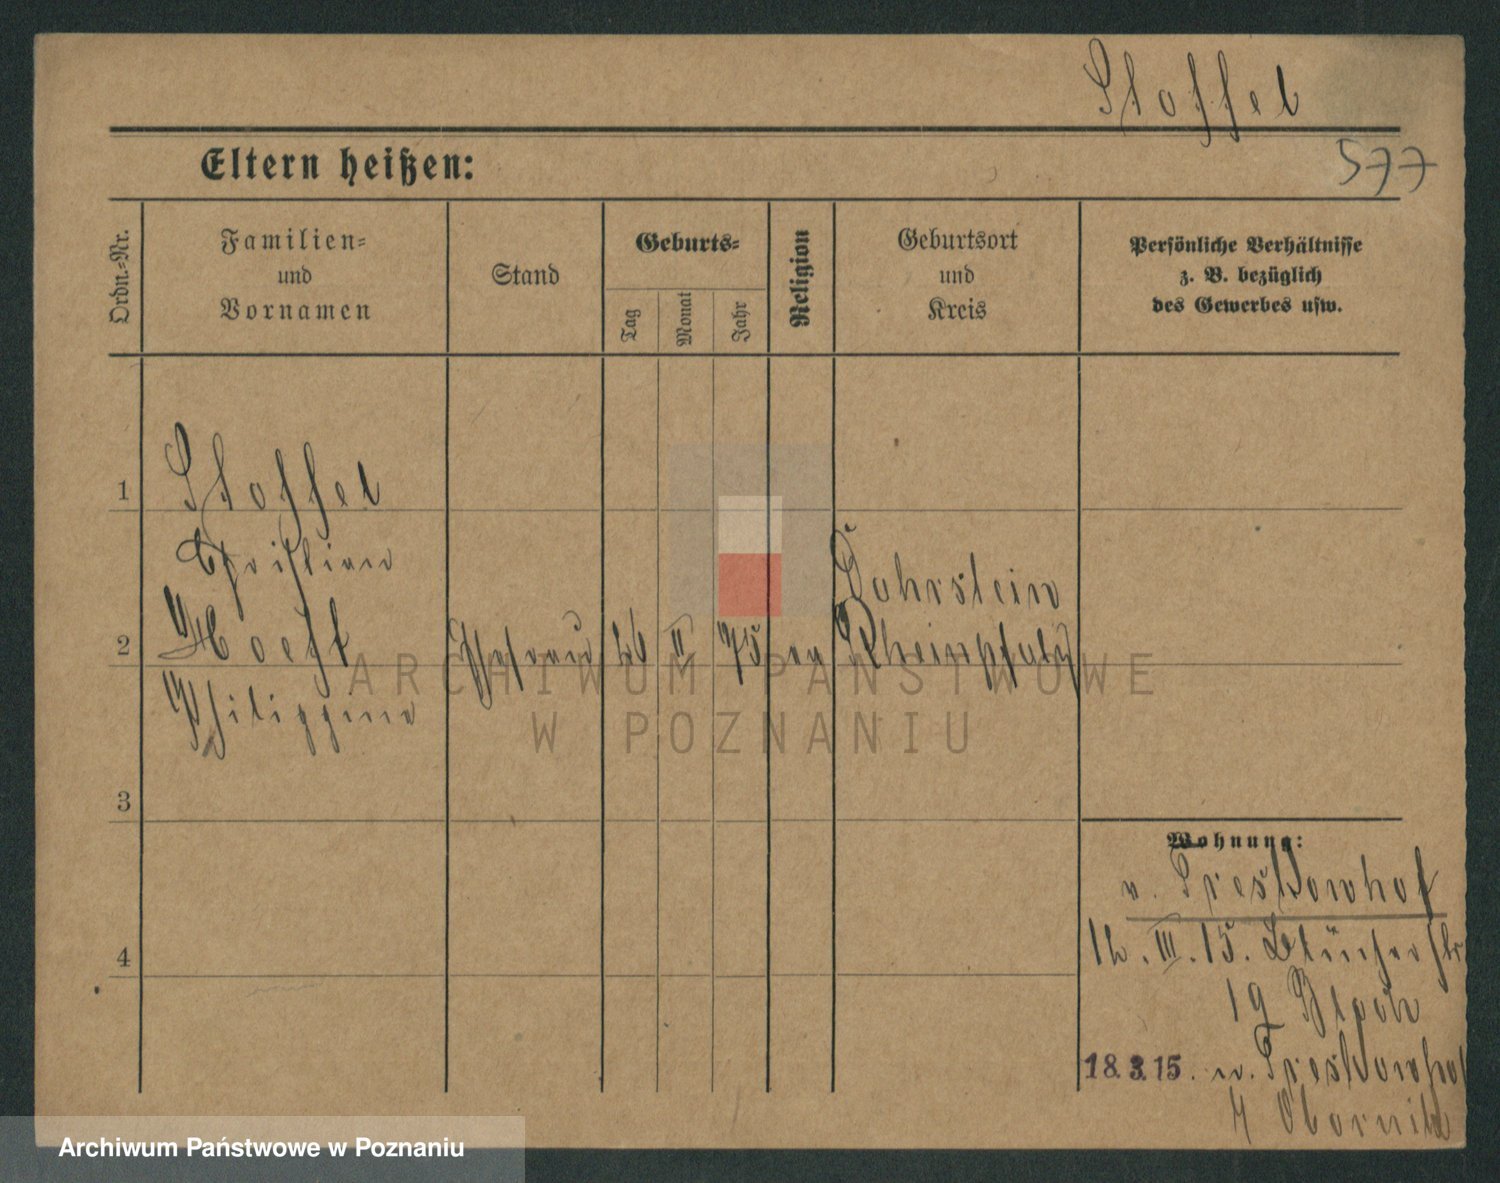 Stoffel
577
Eltern heißen:
Ordn.-Nr.
Familien-
und
Vornamen
Stand
Geburts-
Tag
Monat
Jahr
Religion
Geburtsort
und
Kreis
Persönliche Verhältnisse
z. B. bezüglich
des Gewerbes usw.
1
Stoffel
Christian
2
Hoest
Philippine
Ehefrau
26
II
75
ev
Dohrstein
Rheinpfalz
3
4
Wohnung:
n. Treskowhof
12. III. 15. Blücherstr
19
18.3.15. n. Treskowhof
Obornik
ARCHIWUM PAŃSTWOWE
W POZNANIU
Archiwum Państwowe w Poznaniu